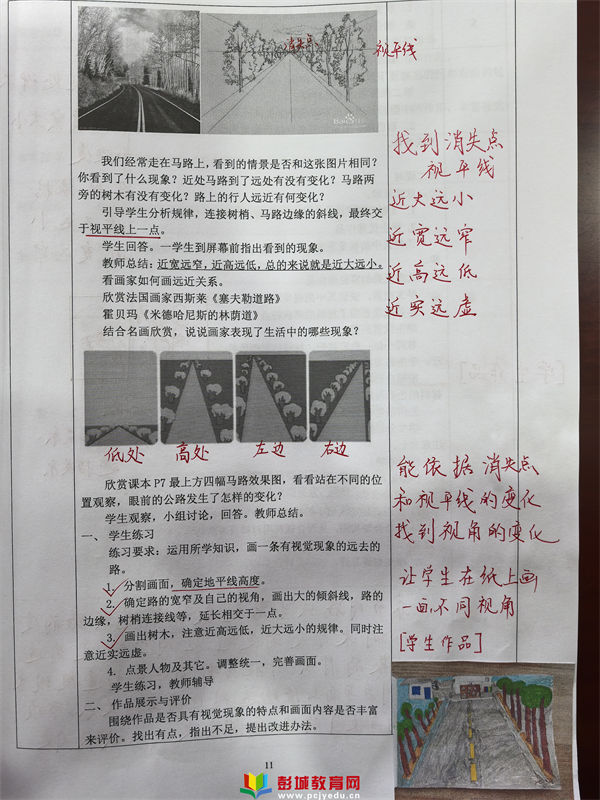 消失点
视平线
Bai百科
找到消失点
视平线
近大远小
近宽远窄
近高远低
近实远虚
我们经常走在马路上，看到的情景是否和这张图片相同？
你看到了什么现象？近处马路到了远处有没有变化？马路两
旁的树木有没有变化？路上的行人远近有何变化？
引导学生分析规律，连接树梢、马路边缘的斜线，最终交
于视平线上一点。
学生回答。一学生到屏幕前指出看到的现象。
教师总结：近宽远窄，近高远低，总的来说就是近大远小。
看画家如何画远近关系。
欣赏法国画家西斯莱《塞夫勒道路》
霍贝玛《米德哈尼斯的林荫道》
结合名画欣赏，说说画家表现了生活中的哪些现象？
低处
高处
左边
右边
能依据消失点
和视平线的变化
找到视角的变化
让学生在纸上画
一画不同视角
[学生作品]
欣赏课本 P7 最上方四幅马路效果图，看看站在不同的位
置观察，眼前的公路发生了怎样的变化？
学生观察，小组讨论，回答。教师总结。
一、 学生练习
练习要求：运用所学知识，画一条有视觉现象的远去的
路。
1. 分割画面，确定地平线高度。
2. 确定路的宽窄及自己的视角，画出大的倾斜线，路的
边缘，树梢连接线等，延长相交于一点。
3. 画出树木，注意近高远低，近大远小的规律。同时注
意近实远虚。
4. 点景人物及其它。调整统一，完善画面。
学生练习，教师辅导
二、 作品展示与评价
围绕作品是否具有视觉现象的特点和画面内容是否丰富
来评价。找出有点，指出不足，提出改进办法。
11
彭城教育网
www.pcjyedu.cn